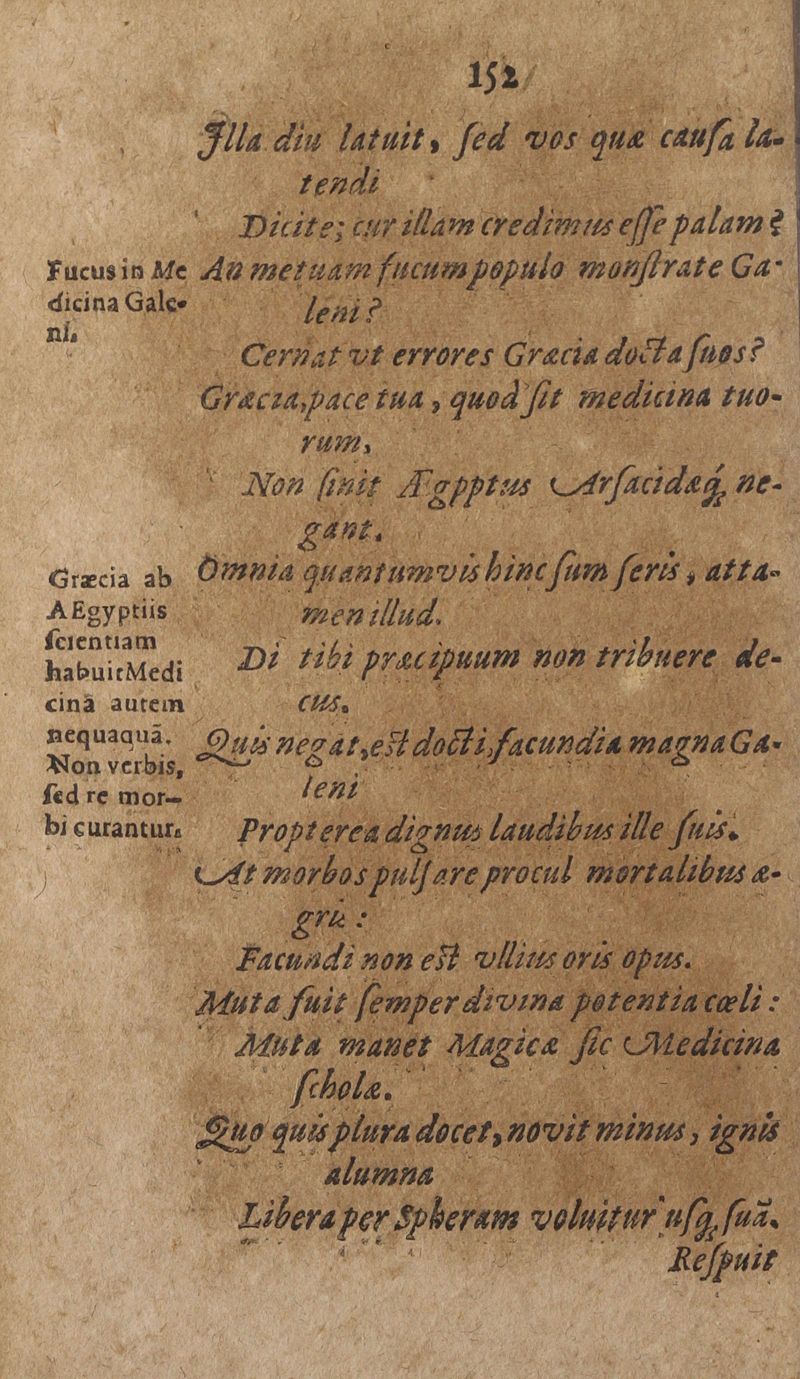 152
Illa diu latuit, ſed vos quæ cauſa la-
tendi
Dicite; cur illam credimus eſſe palam?
Fucus in Me
dicina Gale-
ni.
An metuam fucum populo monſtrare Ga-
leni?
Cernat vt errores Græcia docta ſuos?
Græcia, pace tua, quod ſit medicina tuo-
rum,
Non ſinit Ægpptus Arſacidæq́, ne-
gant.
Græcia ab
AEgyptiis
ſcientiam
habuit Medi
cinâ autem
nequaquã.
Non verbis,
ſed re mor-
bi curantur.
Omnia quantumvis hinc ſum feris, atta-
men illud.
Di tibi præcipuum non tribuere de-
cus.
Quis negat, est docti facundia magna Ga-
leni
Propterea dignus laudibus ille ſuis.
At morbos pulſare procul mortalibus æ-
gris:
Facundi non est vllius oris opus.
Muta fuit ſemper divina potentia cœli:
Muta manet Magicæ ſic Medicina
ſcholæ.
Quo quis plura docet, novit minus, ignis
alumna
Libera per Spheram voluitur uſq, ſuã.
Reſpuit